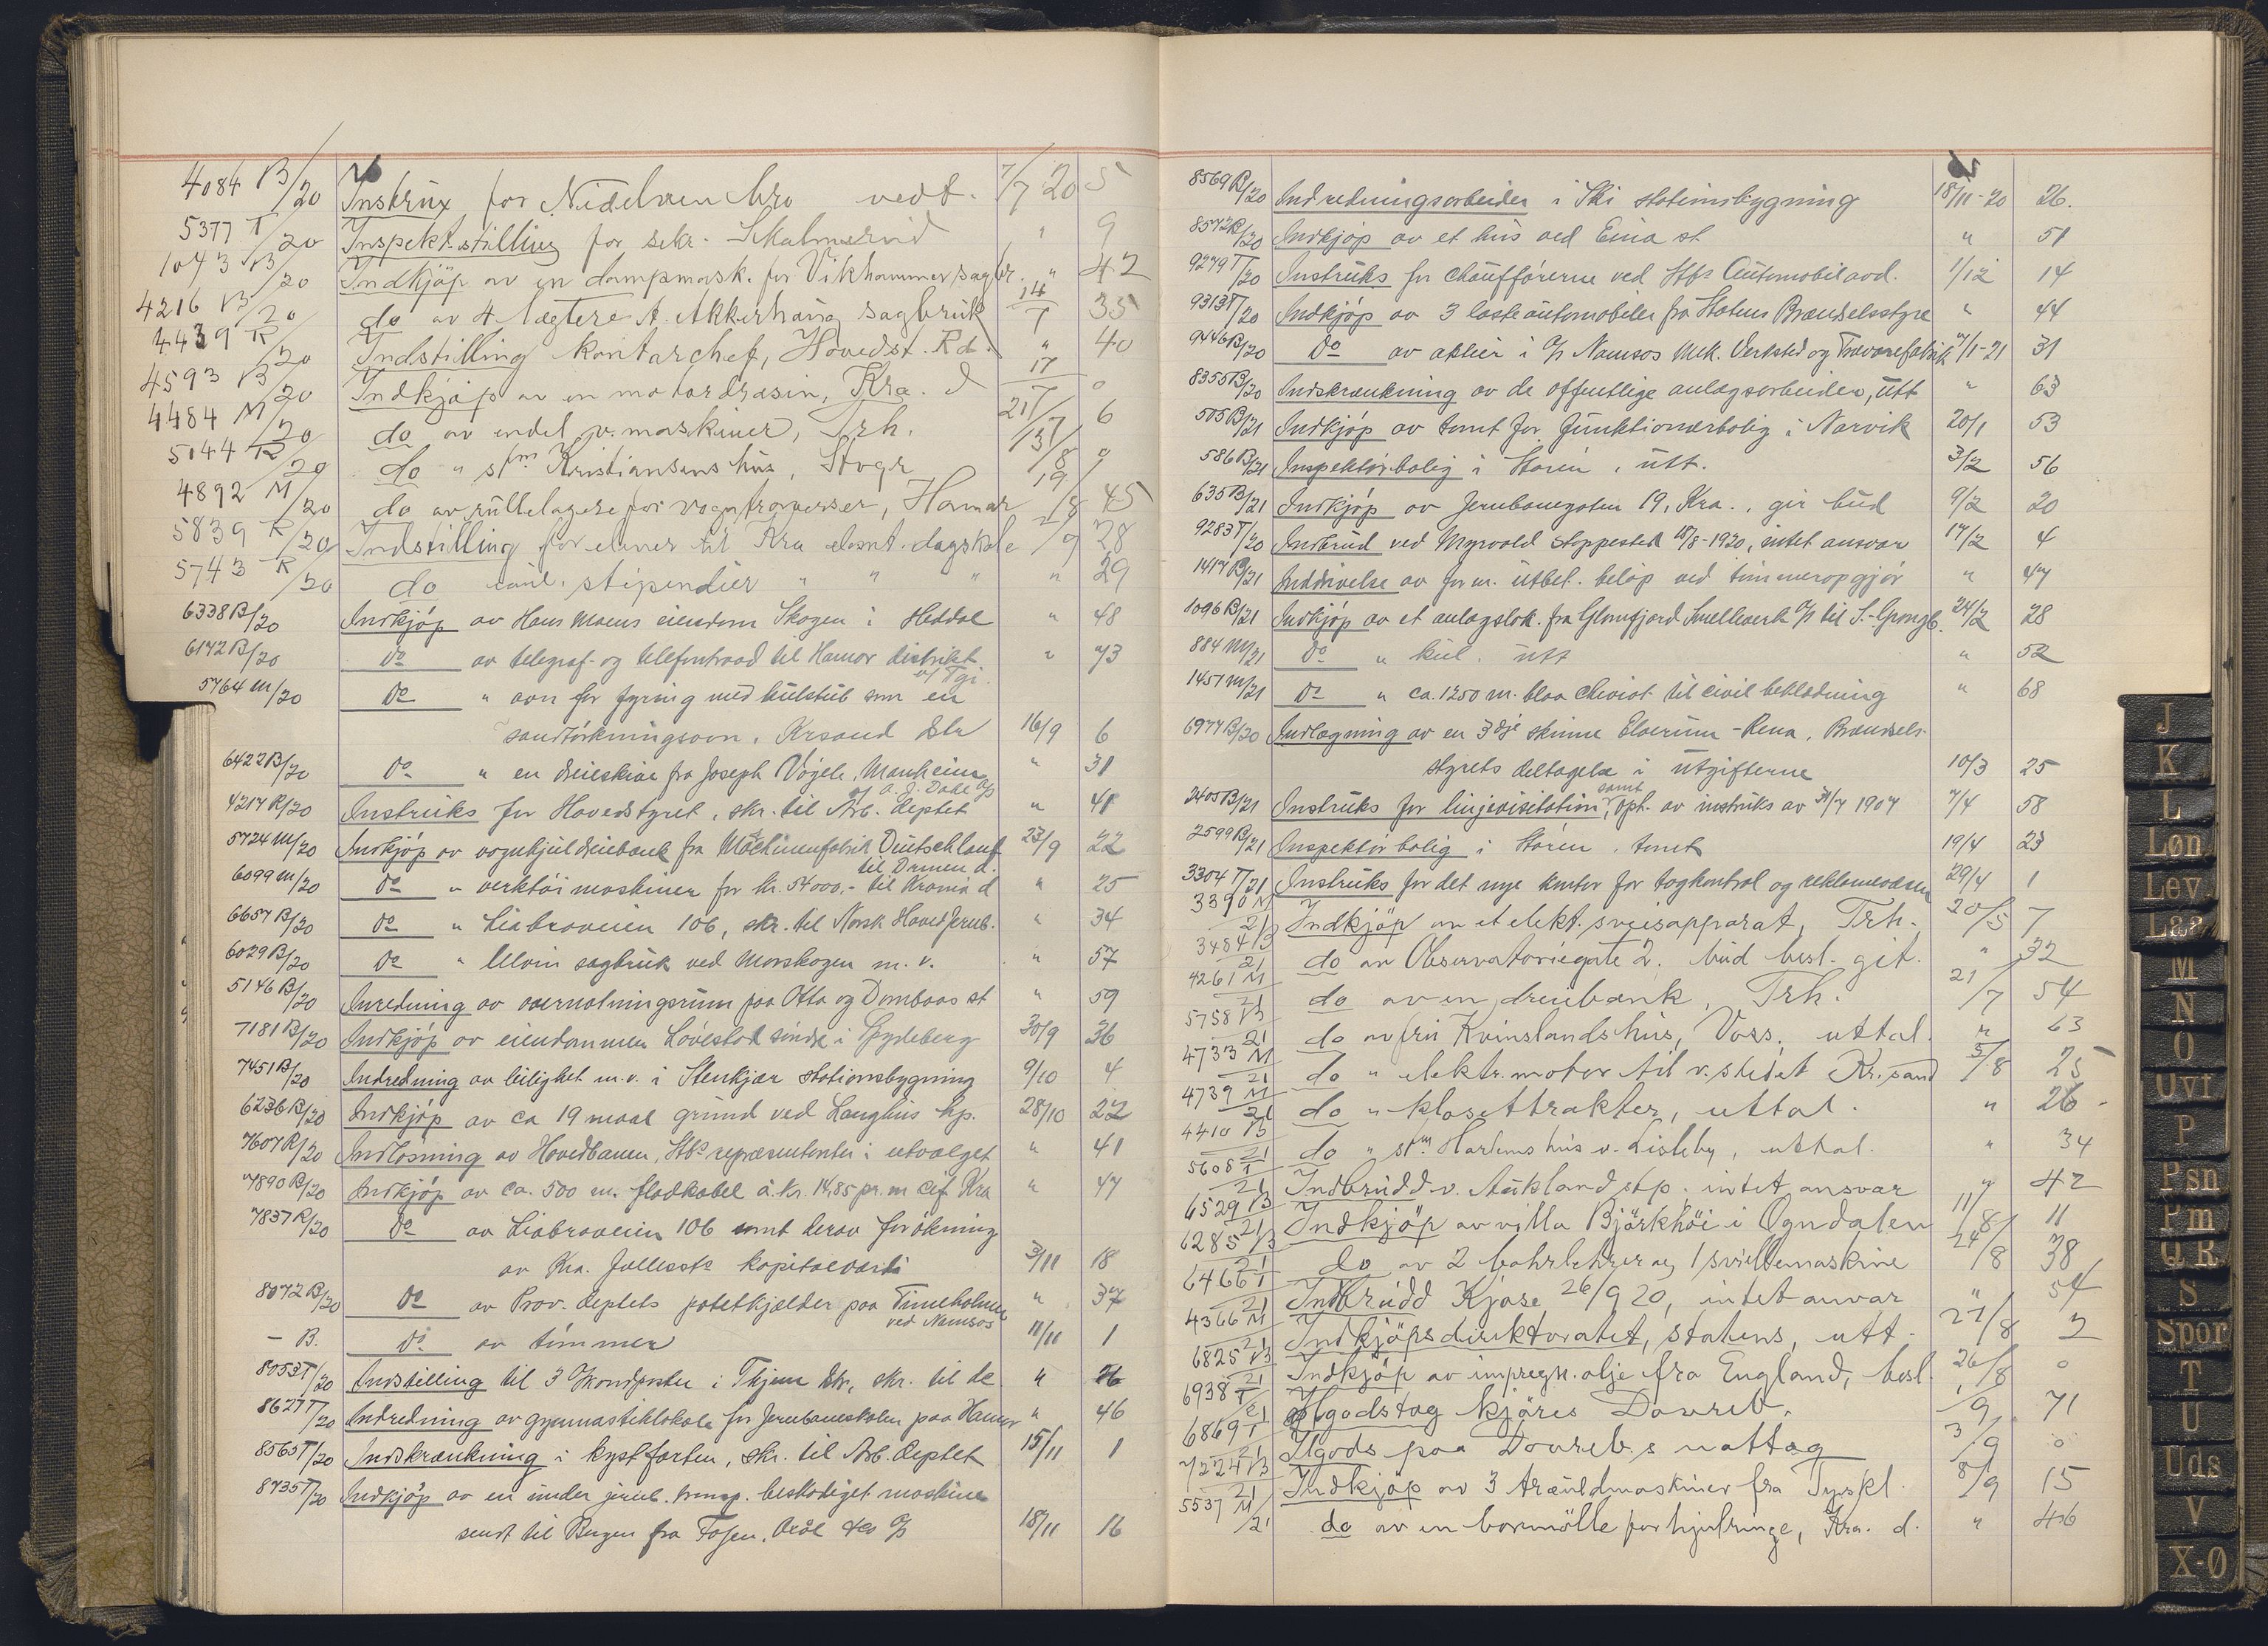 4084 B/20 Instrux for Nidelven bro vedt. 7/7 20 5
5377 T/20 Inspekt.stilling for sekr. Skalmerud " 9
1043 B/20 Indkjöp av en dampmask. for Vikhammer sagbr. " 42
4216 B/20 do av 4 lægtere A. Akkerhaug sagbruk 14/7 35
4439 R/20 Indstilling kontorchef, Hovedst. Rd. " 40
4593 B/20 Indkjöp av en motordræsin, Kra. d 17/7 0
4484 M/20 do av endel v.maskiner, Trh. 21/7 6
5144 R/20 do " stm Kristiansens hus, Stvgr 13/8 9
4892 M/20 do av rullelagere for vogntraverser, Hamar 19/8 45
5839 R/20 Indstilling for elever til Kra elemt. dagskole /9 28
5743 R/20 do stipendier " " " " 29
6338 B/20 Indkjöp av Hans Moens eiendom Skogen i Heddal " 48
6142 B/20 Do av telegraf- og telefontraad til Hamar distrikt " 73
5764 M/20 Do " ovn for fyring med kulstub som en
sandtörkningsovn, Krsand Dstr 16/9 6
6422 B/20 Do " en dreieskive fra Joseph Vögele, Manheim " 31
v/ A. J. Dahl A/S
4217 R/20 Instruks for Hovedstyret, skr. til Arb. deptet " 41
5724 M/20 Indkjöp av vognhjuldreiebænk fra Machinenfabrik Deutschland 23/9 22
til Drmn d.
6099 M/20 Do " verktöimaskiner for Kr. 54000,- til Krania d " 25
6657 B/20 Do " Liabroveien 106, skr. til Norsk Hoved Jernb. " 34
6029 B/20 Do " Ulvin sagbruk ved Morskogen m. v. " 57
5146 B/20 Inredning av overnatningsrum paa Otta og Dombaas st " 59
7181 B/20 Indkjöp av eiendommen Lövestad söndre i Spydeberg 30/9 36
7451 B/20 Indredning av leilighet m.v. i Stenkjær stationsbygning 9/10 4
6236 B/20 Indkjöp av ca 19 maal grund ved Langhus hp. 28/10 22
7607 R/20 Indlösning av Hovedbanen, Stbs repræsentanter i utvalget " 41
7890 B/20 Indkjöp av ca. 500 m. flodkabel à kr. 14,85 pr. m cif Kra " 47
7837 R/20 Do av Liabroveien 106 samt derav forökning
av Kra. Fællesst kapitalværdi 3/11 18
8072 B/20 Do av Prov. deptets potetkjælder paa Tinneholmen " 37
ved Namsos
- B. Do av tömmer 11/11 1
8053 T/20 Indstilling til 3 Kondposter i Thjem Dstr, skr. til de " 26
8627 T/20 Indredning av gymnastiklokale for Jernbaneskolen paa Hamar " 46
8565 T/20 Indskrænkning i kystfarten, skr. til Arb. deptet 15/11 1
8735 T/20 Indkjöp av en under jernb. transp. beskadiget maskine
sendt til Bergen fra Fosen, & Co A/S 18/11 16
8569 B/20 Indredningsarbeider i Ski stationsbygning 18/11-20 26.
8572 R/20 Indkjöp av et hus ved Eina st " 51
9279 T/20 Instruks for chaufförerne ved Stbs Automobilavd. 1/12 14
9313 T/20 Indkjöp av 3 lasteautomobiler fra Statens Brændselsstyre " 44
9446 B/20 Do av aktier i A/S Namsos Mek. Verksted og Trævarefabrik 7/1-21 31
8355 B/20 Indskrænkning av de offentlige anlægsarbeider, utt " 63
505 B/21 Indkjöp av tomt for funktionærbolig i Narvik 20/1 53
586 B/21 Inspektörbolig i Stören, utt. 3/2 56
635 B/21 Indkjöp av Jernbanegaten 19, Kra., gir bud 9/2 20
9283 T/20 Indbrud ved Myrvold stoppested 18/8-1920, intet ansvar 17/2 4
1417 R/21 Inddrivelse av form. utbet. belöp ved tömmeropgjör " 47
1096 B/21 Indkjöp av et anlægslok. fra Glomfjord Smelteverk A/S til S.-Grongb. 24/2 28
884 M/21 Do " kul. utt " 52
1451 M/21 Do " ca. 1250 m. blaa cheviot til civil beklædning " 68
6977 B/20 Indlægning av en 3dje skinne Elverum-Rena, Brændsels-
styrets deltagelse i utgifterne 10/3 25
2405 B/21 Instruks for linjevisitation, samt opt. av instruks av 31/7 1907 7/4 58
2599 B/21 Inspektörbolig i Stören, tomt 19/4 23
3304 T/21 Instruks for det nye kontor for togkontrol og reklamevæsen 29/4 1
3390 M/21 Indkjöp av et elekt. sveisapparat, Trh. 20/5 7
3484 B/21 do av Observatoriegate 2. bud besl. git. " 32
4261 M/21 do av en dreiebænk, Trh. 21/7 54
5758 B/21 do av fru Kvinslands hus, Voss, uttal. " 63
4733 M/21 do " elektr. motor til v.stedet Kr.sand 5/8 25
4739 M/21 do " klosettrakter, uttal. " 26
4410 B/21 do " stm Harlems hus v. Lisleby, uttal. " 34
5608 T/21 Indbrudd v. Aukland stp. intet ansvar " 42
6529 B/21 Indkjöp av villa Björkhöi i Ogndalen 11/8 11
6285 B/21 do av 2 og 1 maskine 24/8 38
6466 T/21 Indbrudd Kjose 26/9 20, intet ansvar " 54
4366 M/21 Indkjöpsdirektoratet, statens, utt. 27/8 2
6825 B/21 Indkjöp av impregn. olje fra England, besl. 26/8 0
6938 T/21 Ilgodstog kjöres Dovreb. /9 71
6869 T/21 Ilgods paa Dovreb.s nattog 3/9 0
7224 B/21 Indkjöp av 3 træuldmaskiner fra Tyskl. 8/9 15
5537 M/21 do av en boremölle for hjulringe, Kra. d. " 46
J
K
L
Løn
Lev.
Laa
M
N
O
Ovf
P
Psn
Pm
Q.R.
S
Spor
T
U
Uds
V
X-Ø